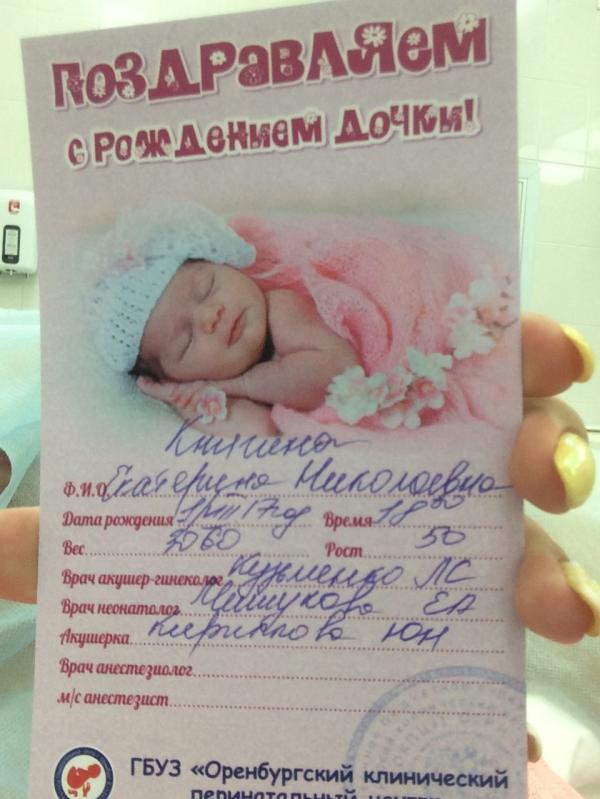 ПОЗДРАВЛЯЕМ
С РОЖДЕНИЕМ ДОЧКИ!
Книгина
Ф.И.О Екатерина Николаевна
Дата рождения Время 18 50
Вес 3060 Рост 50
Врач акушер-гинеколог Кузьменко ЛС
Врач неонатолог ЕА
Акушерка Кириллова ЮН
Врач анестезиолог
м/с анестезист
ГБУЗ «Оренбургский клинический
перинатальный центр»